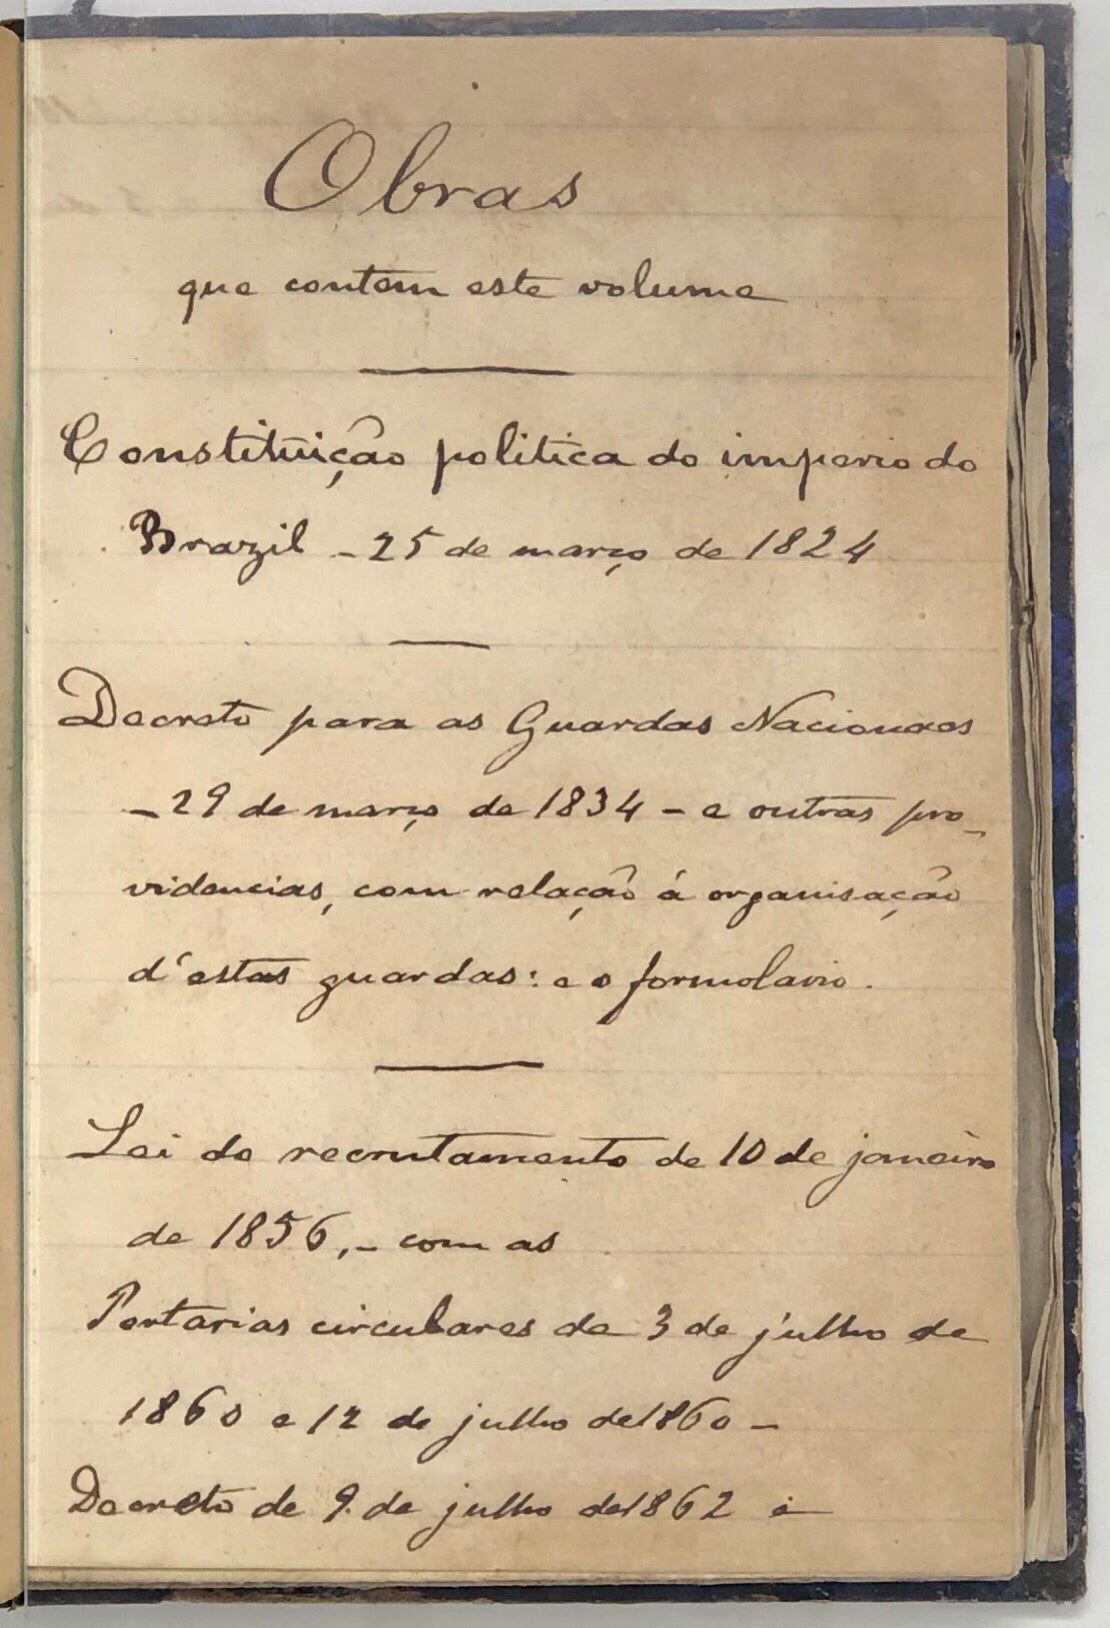 Obras
que contem este volume
Constituição politica do imperio do
Brazil - 25 de março de 1824
Decreto para as Guardas Nacionaes
- 29 de março de 1834 - e outras pro-
videncias, com relação á organisação
d'estas guardas: e o formolario.
Lei do recrutamento de 10 de janeiro
de 1856, - com as
Portarias circulares de 3 de julho de
1860 e 12 de julho de 1860 -
Decreto de 9. de julho de 1862 e